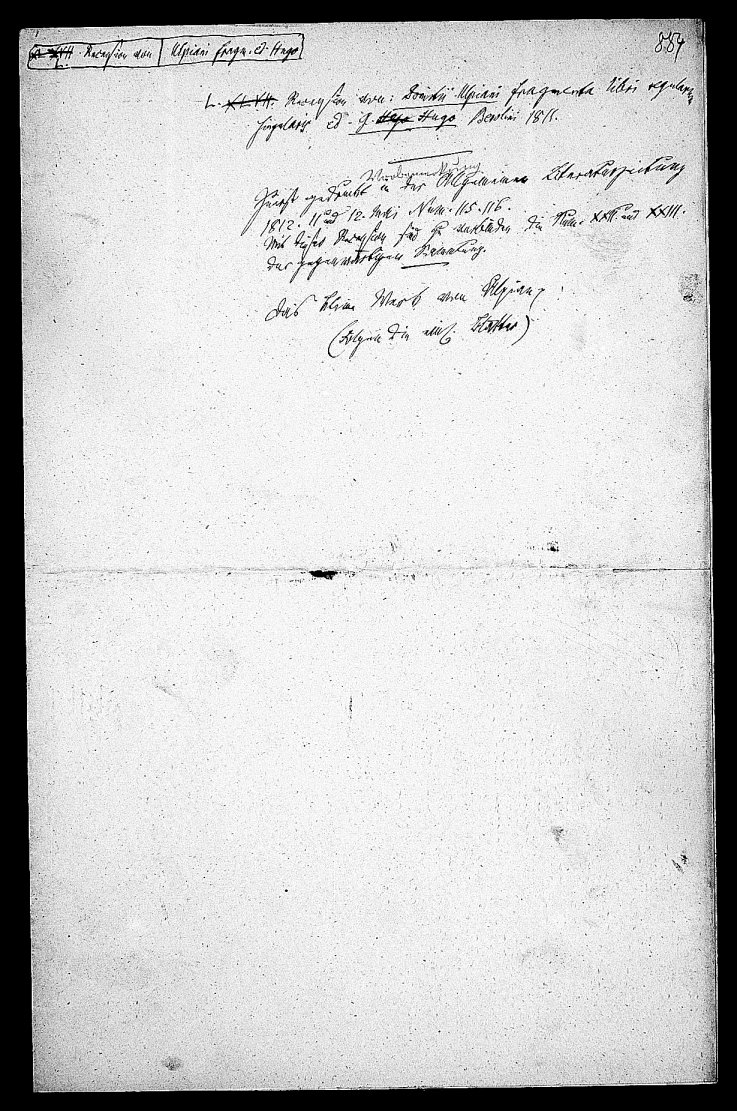 Recension von | Ulpiani fragm. ed. Hugo
884
L. Recension von: Domitii Ulpiani fragmenta libri regularum
singularis ed. G. Hugo Berolini 1811.
Vorbemerkung
Zuerst gedruckt in der Allgemeinen Literaturzeitung
1812. 11 und 12. Mai Num. 115. 116.
Mit dieser Recension sind zu verbinden die Num. XXII und XXIII.
der gegenwärtigen Sammlung.
Das kleine Werk von Ulpian
(Folgen die Blätter)